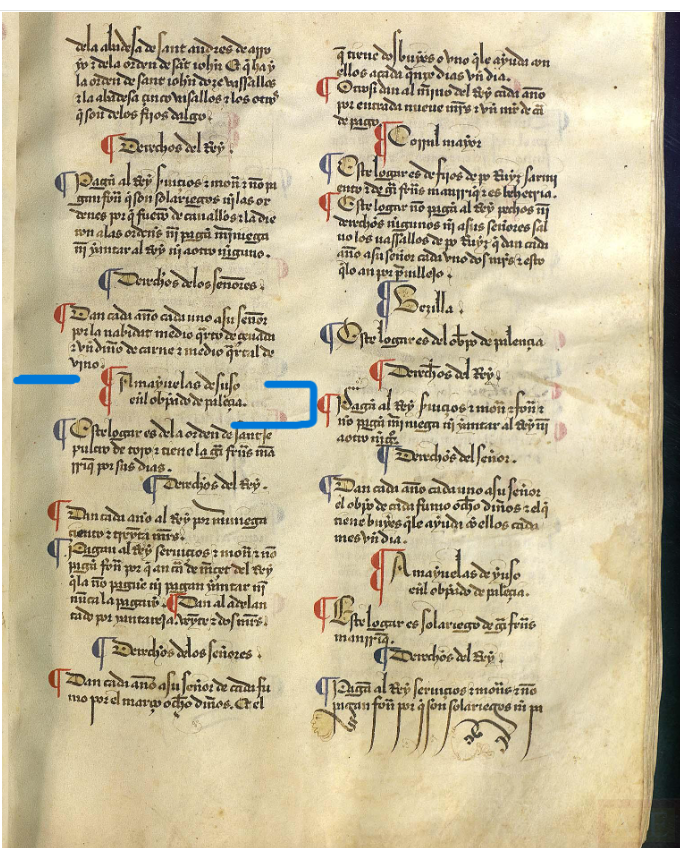 dela abadesa de sant andres de arro
yo ⁊ dela orden de sāt iohñ ⁊ q̄ ha y
la orden de sant iohñ doze vassallos
⁊ la abadesa çinco vasallos ⁊ los otros
q̄ son delos fijos dalgo.
Derechos del Rey.
Pagā al Rey s̃uiçios ⁊ mon̄ ⁊ nō pa
gan fon̄ q̄ son solariegos ni las or
denes por q̄ fuero de cauallos ⁊ la die
ron alas ordēs ni pagā miniega
ni yantar al Rey ni aotro ninguno.
Derechos delos señores.
Dan cada año cada uno asu señor
por la nabidat medio q̄rto de çeuada
⁊ vn dinō de carne ⁊ medio q̄rtal de
vino.
Amayuelas de suso
en̄l obpādo de palēçia.
Este logar es dela orden de sant se
pulcro de toro ⁊ tiene la gā frñs ma
rriq̄ por sus dias.
Derechos del Rey.
Dan cada año al Rey por muniega
çiento ⁊ treynta mr̃s.
Pagan al Rey seruiçios ⁊ mon̄ ⁊ nō
pagā fon̄ por q̄ an cā de m̃çet del Rey
q̄la nō pague ni pagan yantar ni
nūca la pagarō. Dan al adelan
tado por yantareja veynte ⁊ dos mr̃s.
Derechos delos señores.
Dan cada año asu señor de cada fu
mo por el março ocho dinos. Et el
q̄ tiene dos bueyes o vno q̄le ayuda con
ellos acada q̄nze dias vn dia.
Otrosi dan al m̃ino del Rey cada año
por entrada nueue mr̃s ⁊ vn mr̃ de cā
de pago.
mayor
Este logar es de fijos de po Ruyz sarmi
ento ⁊ de gā frñs manrriq̄ ⁊ es behetria.
Este logar nō pagā al Rey pechos ni
derechos nigunos ni asus señores sal
uo los vassallos de po Ruyz q̄ dan cada
año asu señor cada vno dos mr̃s ⁊ esto
q̄lo an por p̃uillejo.
Bezilla.
Este logar es del obpo de palençia
Derechos del Rey.
Pagā al Rey s̃uiçios ⁊ mon̄ ⁊ fon̄ ⁊
nō pagā miniega ni yantar al Rey ni
aotro nīgo.
Derechos del señor.
Dan cada año cada uno asu señor
el obpo de cada fumo ocho dinos ⁊ el q̄
tiene bueyes q̄le ayudā cō ellos cada
mes vn dia.
Amayuelas de yuso
en̄l obpādo de palēçia.
Este logar es solariego de gā frñs
manrriq̄.
Derechos del Rey.
Pagā al Rey seruiçios ⁊ mon̄s ⁊ nō
pagan fon̄ por q̄ son solariegos ni pa